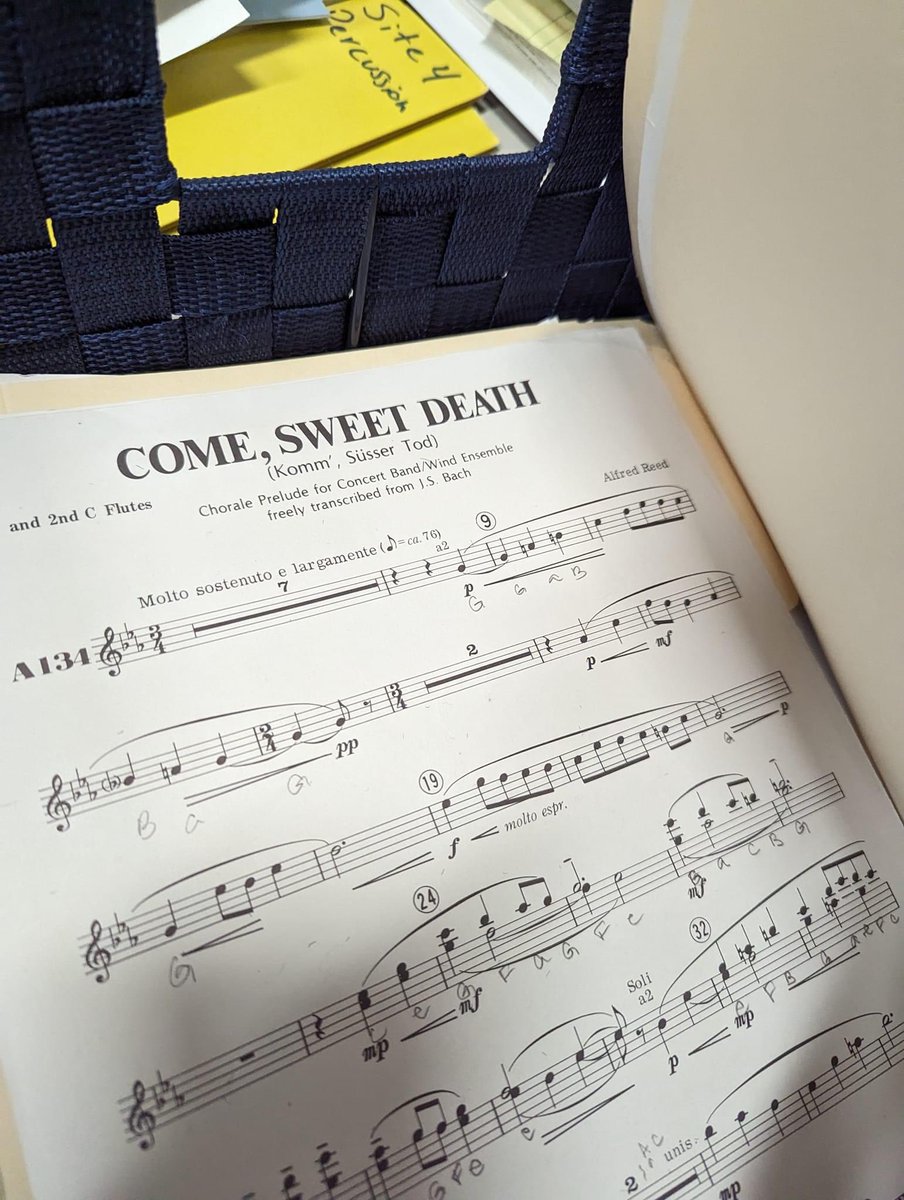 Site 4
Percussion
COME, SWEET DEATH
(Komm', Süsser Tod)
and 2nd C Flutes
Chorale Prelude for Concert Band/Wind Ensemble
freely transcribed from J.S. Bach
Alfred Reed
Molto sostenuto e largamente (♪=ca. 76)
7
a2
9
p
G G a B
A134
3/4
2
p
mf
2/4
pp
3/4
B a G
19
f
molto espr.
a
p
G
24
mp
mf
e G F a G F e
mf
B a C B G
32
Soli
a2
p
mp
G F e
e
A C
2
unis.
mp